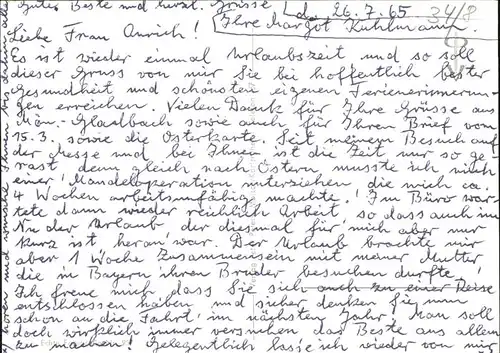 Guter Beste und herzl. Grüsse
Ihre Margot Kuhlmann.
d. 26.7.65
34/8
Liebe Frau Aurich!
Es ist wieder einmal Urlaubszeit und so soll
dieser Gruss von mir Sie bei hoffentlich bester
Gesundheit und schönsten eigenen Ferienerinnerun-
gen erreichen. Vielen Dank für Ihre Grüsse aus
Mön.-Gladbach sowie auch für Ihren Brief vom
15.3. sowie die Osterkarte. Seit meinem Besuch auf
der Messe und bei Ihnen ist die Zeit nur so ge-
rast denn gleich nach Ostern musste ich mich
einer Mandeloperation unterziehen die mich ca.
4 Wochen arbeitsunfähig machte! Im Büro war-
tete dann wieder reichlich Arbeit, so dass auch im
Nu der Urlaub, der diesmal für mich aber nur
kurz ist, heran war. Der Urlaub brachte mir
aber 1 Woche Zusammensein mit meiner Mutter
die in Bayern ihren Bruder besuchen durfte!
Ich freue mich dass Sie sich auch zu einer Reise
entschlossen haben und sicher denken Sie nun
schon an die Fahrt im nächsten Jahr. Man soll
doch wirklich immer versuchen das Beste aus allem
zu machen! Gelegentlich lasse ich wieder von mir